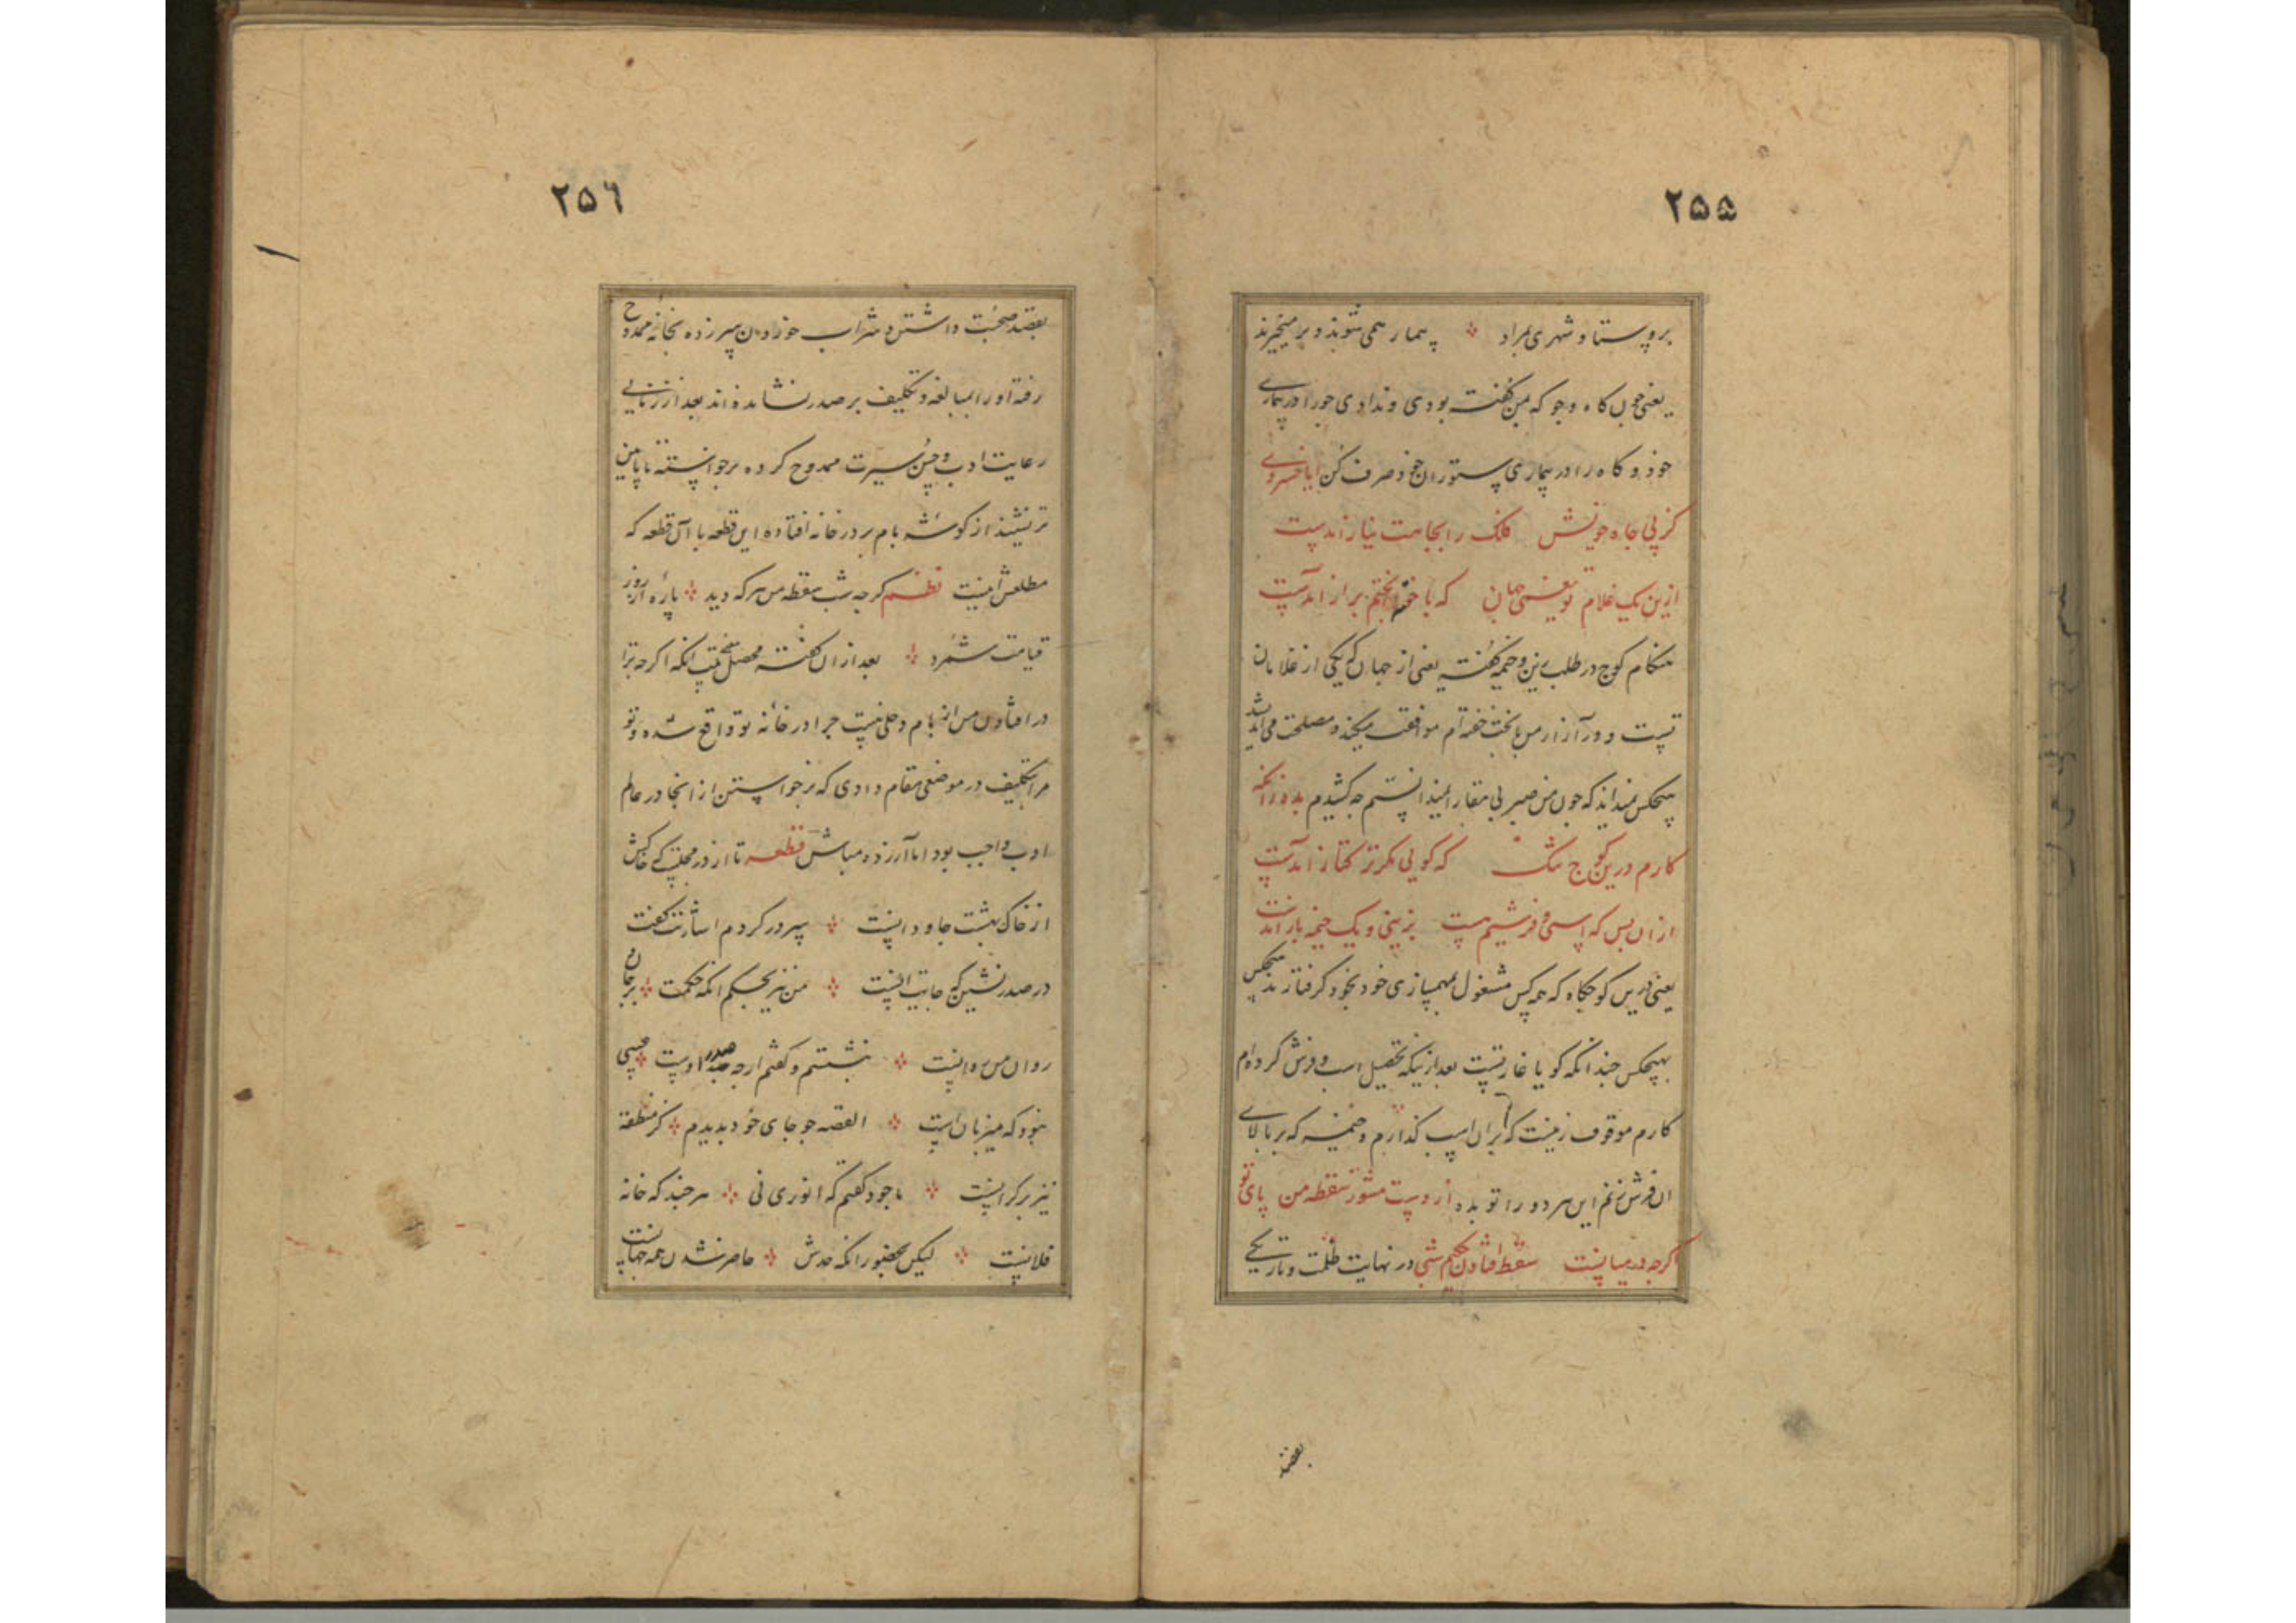 ۲۵۵
بروستا و شهری مراد همی شوند و بر میخیزند
یعنی چون کاه و جو که من گفته بودی و ندادی جو را در بیماری
خود و کاه را در بیماری ستوران خود صرف کن ایا خسروی
کز پی جاه خویش فلک را بجاهت نیاز آمدست
ازین یک غلام تو یعنی جهان که با خفته بختم براز آمدست
هنکام کوچ در طلب زین و خیمه گفته یعنی از جهان که یکی از غلامان
تست و در آزار من با بخت خفته‌ام موافقت میکند و مصلحت می
هیچکس نمیداند که چون من صبر بی
کارم درین کوچ تنک که کویی مکر ترکتاز آمدست
ازان پس که اسپی و فرشیم هست بزینی و یک خیمه باز آمدست
یعنی درین کوچگاه که همه کس مشغول بخود گرفتارند
بهیچکس چندانکه کویا غارتست بعد ازینکه تحصیل اسب و فرش کرده‌ام
کارم موقوف زینست که بران اسپ گذارم و خیمه که بر بالای
آن فرش زنم این هر دو را تو بده سقطه من پای تو
کرچه در میانست سقط افتادن حکیم شبی در نهایت ظلمت و تاریکی
۲۵٦
بقصد صحبت داشتن و شراب خوردن سر زده بخانه ممدوح
رفته او را بمبالغه و تکلیف بر صدر نشانده‌اند بعد از زمانی
رعایت ادب و حسن سیرت ممدوح کرده برخواسته تا پایین
تر نشیند از کوشه بام بر در خانه افتاده این قطعه با آن قطعه که
مطلعش اینست نظم کرچه شب سقطه من هر که دید پاره از روز
قیامت شمرد بعد ازان گفته محصل انکه اکرچه ترا
در افتادن من از بام دخلی نیست چرا در خانه تو واقع شده و تو
مرا بتکلیف در موضعی مقام دادی که برخواستن از انجا در عالم
ادب واجب بود اما آزرده مباش قطعه تا از در مجلسی که خاکش
از خاک بهشت جاودانست سر در کردم اشارتت گفت
در صدر نشین که جایت اینست من نیز بحکم انکه حکمت بر جان و
روان من روانست بنشستم و گفتم ارچه صدر اوست
نبود که میزبان است القصه چو جای خود بدیدم کز منطقه
نیز بر کرانست با خود کفتم که انوری نی هر چند که خانه
فلانست لیکن بحضور انکه حدش حاصر نشدن همه جهانست